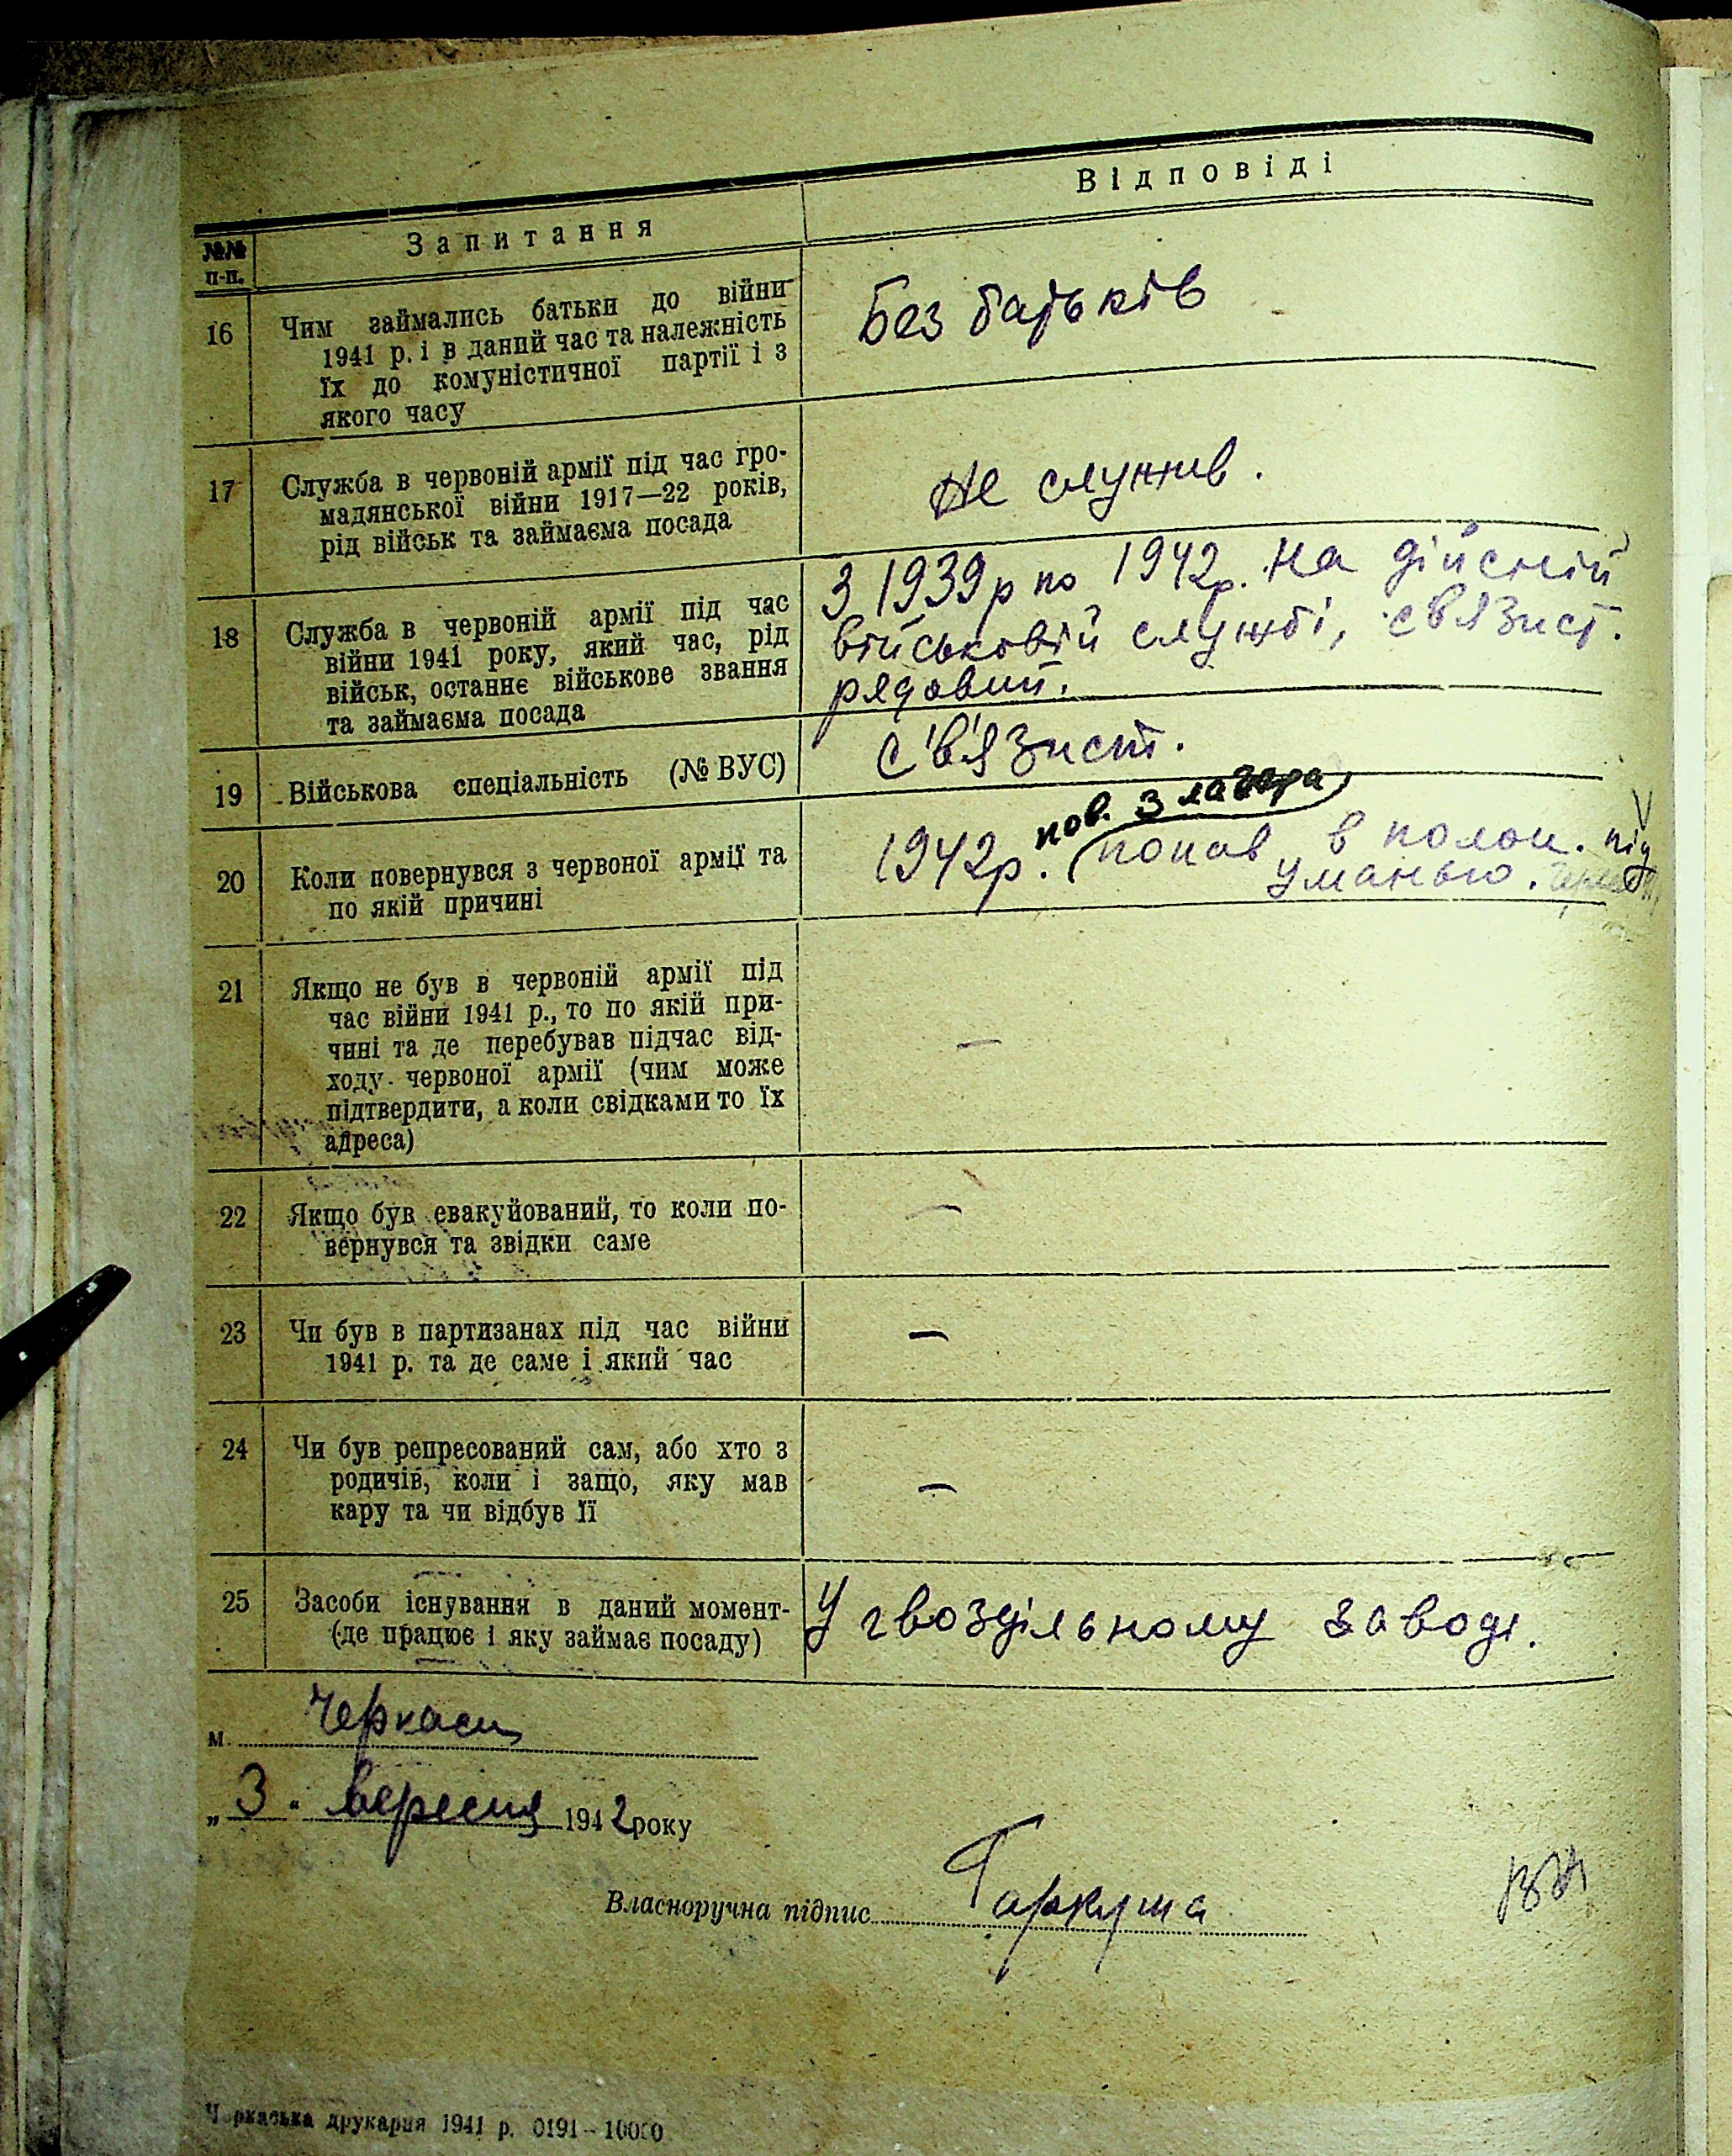 №№ п-п.
Запитання
Відповіді
16
Чим займались батьки до війни
1941 р. і в даний час та належність
їх до комуністичної партії і з
якого часу
Без батьків
17
Служба в червоній армії під час гро-
мадянської війни 1917—22 років,
рід військ та займаєма посада
Не служив.
18
Служба в червоній армії під час
війни 1941 року, який час, рід
військ, останнє військове звання
та займаєма посада
З 1939р по 1942р. на дійсній
військовій службі, св'язист.
рядовий.
19
Військова спеціальність (№ ВУС)
с'в'язист.
20
Коли повернувся з червоної армії та
по якій причині
пов. з лагера
1942р. (попав в полон. під
Уманью.
21
Якщо не був в червоній армії під
час війни 1941 р., то по якій при-
чині та де перебував підчас від-
ходу червоної армії (чим може
підтвердити, а коли свідками то їх
адреса)
—
22
Якщо був евакуйований, то коли по-
вернувся та звідки саме
—
23
Чи був в партизанах під час війни
1941 р. та де саме і який час
—
24
Чи був репресований сам, або хто з
родичів, коли і защо, яку мав
кару та чи відбув її
—
25
Засоби існування в даний момент-
(де працює і яку займає посаду)
У гвоздільному заводі.
м. Черкаси
„3“ вересня 1942 року
Власноручна підпис Гаркуша
Черкаська друкарня 1941 р. 0191—10000